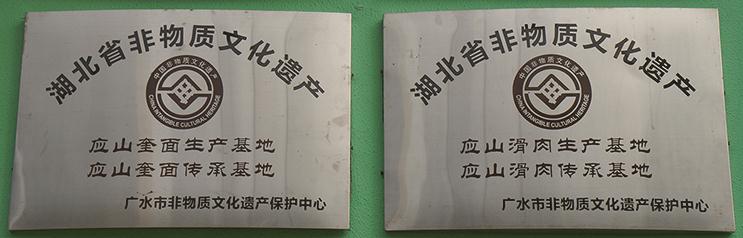 湖北省非物质文化遗产
中国非物质文化遗产
CHINA INTANGIBLE CULTURAL HERITAGE
应山奎面生产基地
应山奎面传承基地
广水市非物质文化遗产保护中心
湖北省非物质文化遗产
中国非物质文化遗产
CHINA INTANGIBLE CULTURAL HERITAGE
应山滑肉生产基地
应山滑肉传承基地
广水市非物质文化遗产保护中心